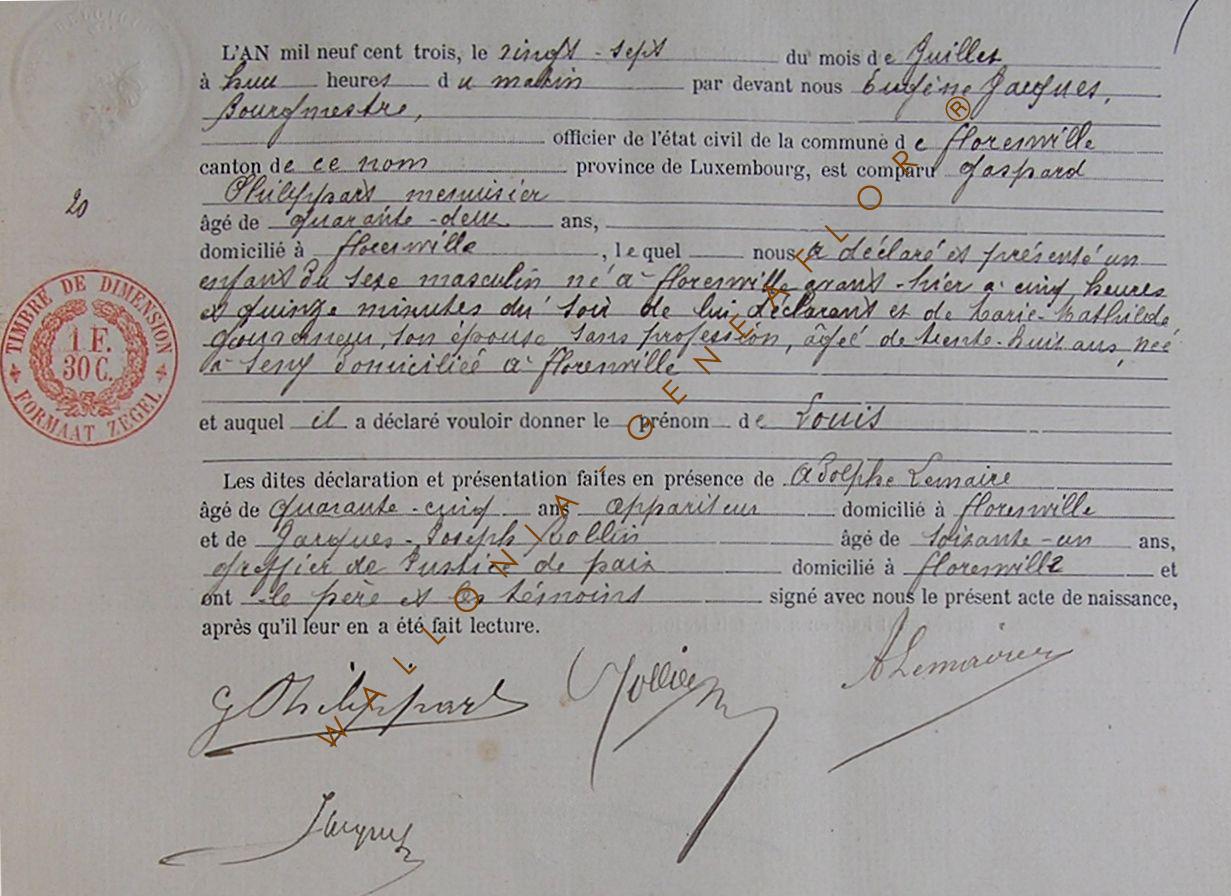 L'AN mil neuf cent trois, le vingt-sept du mois de Juillet
à huit heures du matin par devant nous Eugène Jacques,
Bourgmestre,
officier de l'état civil de la commune de Florenville
canton de ce nom province de Luxembourg, est comparu Gaspard
Philippart menuisier
20
âgé de quarante-deux ans,
domicilié à Florenville, lequel nous a déclaré et présenté un
enfant du sexe masculin né à Florenville avant-hier à cinq heures
et quinze minutes du soir de lui déclarant et de Marie-Mathilde
son épouse sans profession, âgée de trente-huit ans, née
à domiciliée à Florenville
TIMBRE DE DIMENSION
1 F.
30 C.
FORMAAT ZEGEL
et auquel il a déclaré vouloir donner le prénom de Louis
Les dites déclaration et présentation faites en présence de Adolphe Lemaire
âgé de quarante-cinq ans appariteur domicilié à Florenville
et de Jacques-Joseph Rollin âgé de soixante-un ans,
greffier de Justice de paix domicilié à Florenville et
ont le père et les témoins signé avec nous le présent acte de naissance,
après qu'il leur en a été fait lecture.
G Philippart
ALemaire
Jacques
WALLONIA - GENEAFLOR ®